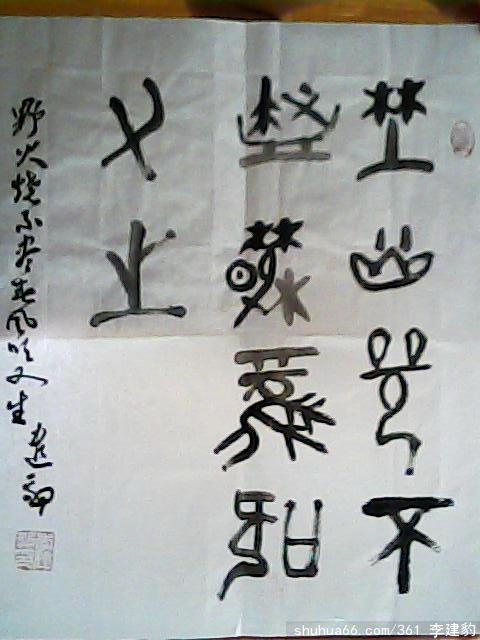 埜火燒不
盡萅風吹
又生
野火烧不尽春风吹又生
shuhua66.com/361 李建豹